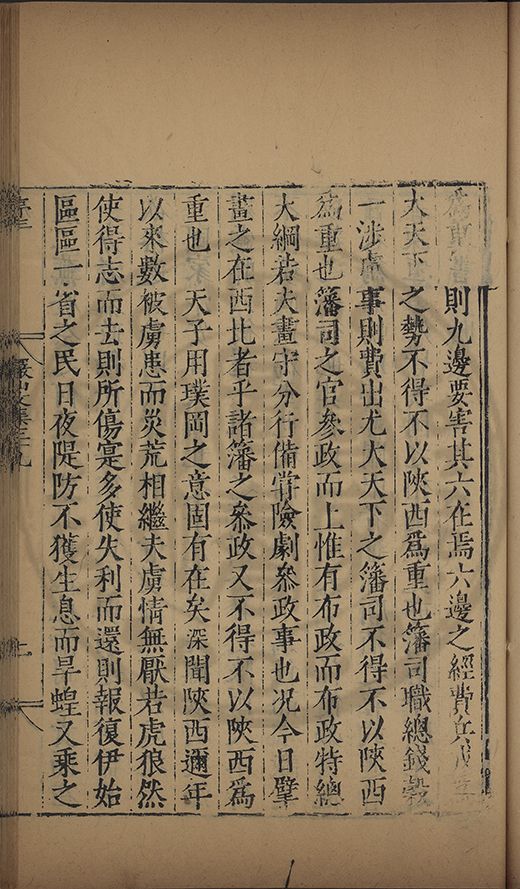 則九邊要害其六在焉六邊之經費兵
大天下之勢不得不以陝西爲重也籓司職總錢穀
一涉虜事則費出尤大天下之籓司不得不以陝西
爲重也籓司之官參政而上惟有布政而布政特總
大綱若夫畫守分行備甞險劇叅政事也况今日擘
畫之在西北者乎諸籓之叅政又不得不以陝西爲
重也 天子用璞岡之意固有在矣深聞陝西邇年
以來數被虜患而災荒相繼夫虜情無厭若虎狼然
使得志而去則所傷寔多使失利而還則報復伊始
區區一省之民日夜隄防不獲生息而旱蝗又乘之